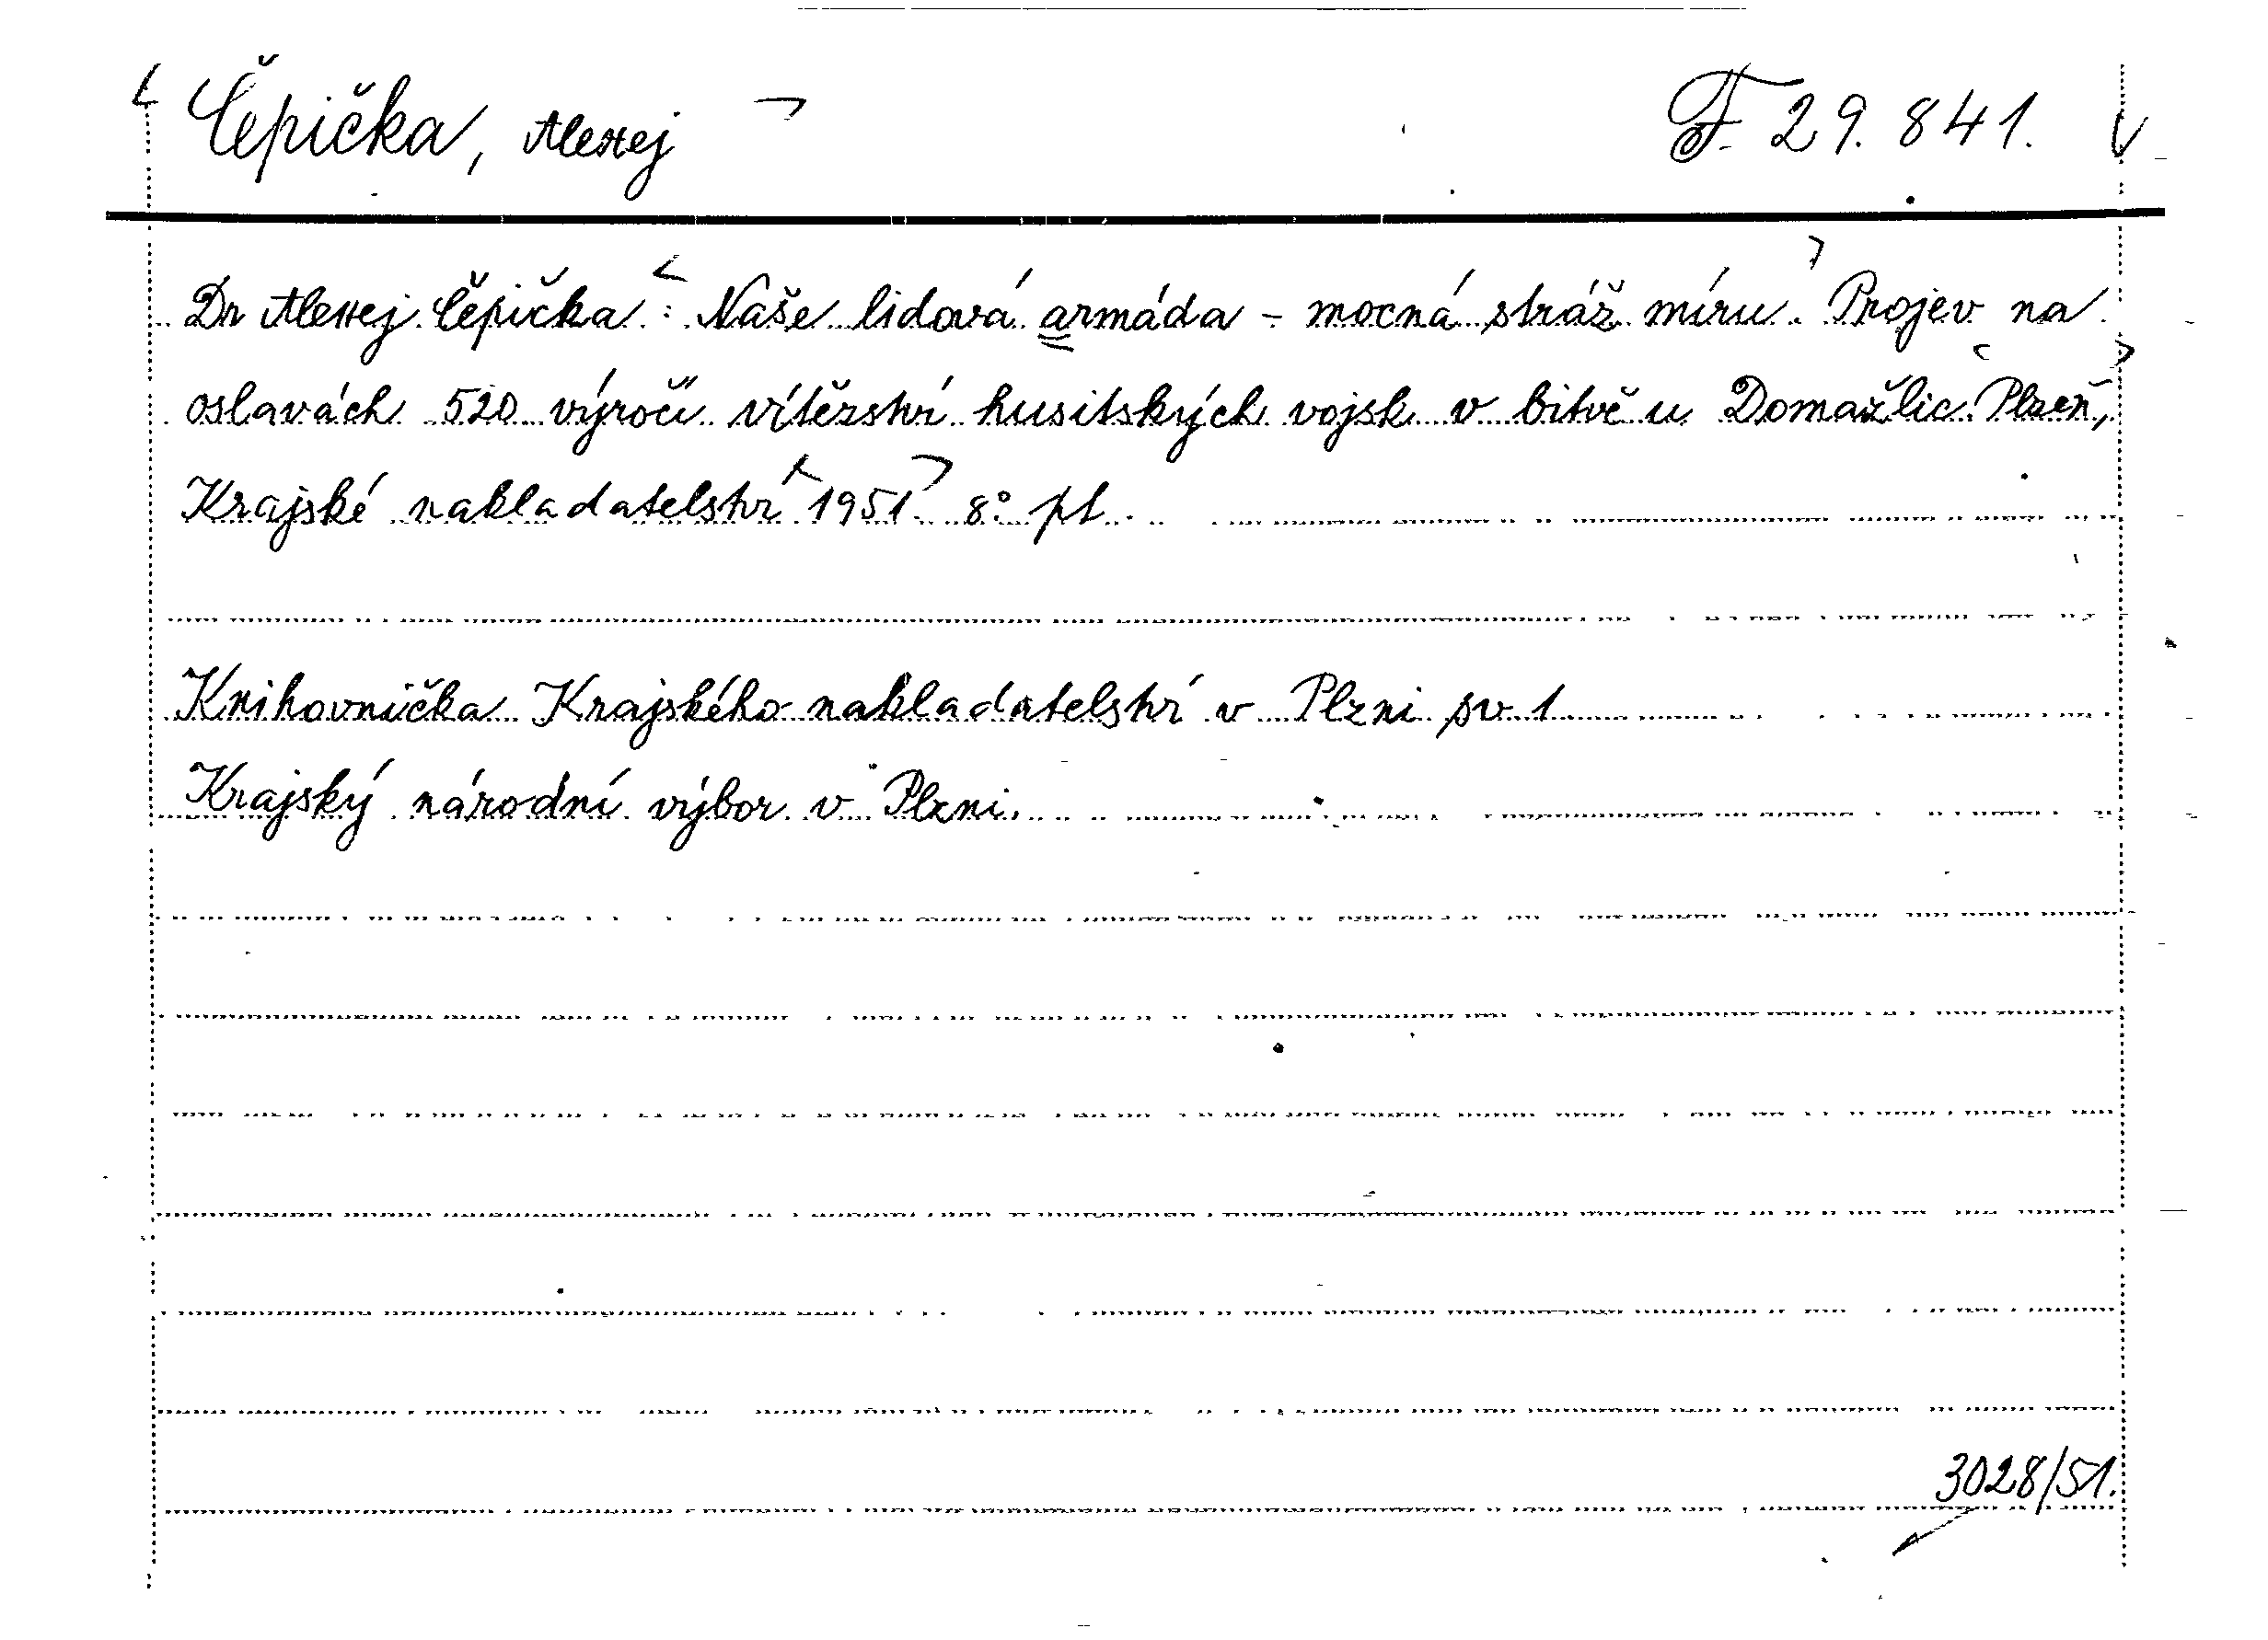 Čepička, Alexej F. 29.841.
Dr Alexej Čepička: Naše lidová armáda - mocná stráž míru. Projev na
oslavách 520 výročí vítězství husitských vojsk v bitvě u Domažlic. Plzeň,
Krajské nakladatelství 1951. 8° pt.
Knihovnička Krajského nakladatelství v Plzni sv. 1
Krajský národní výbor v Plzni.
3028/51.